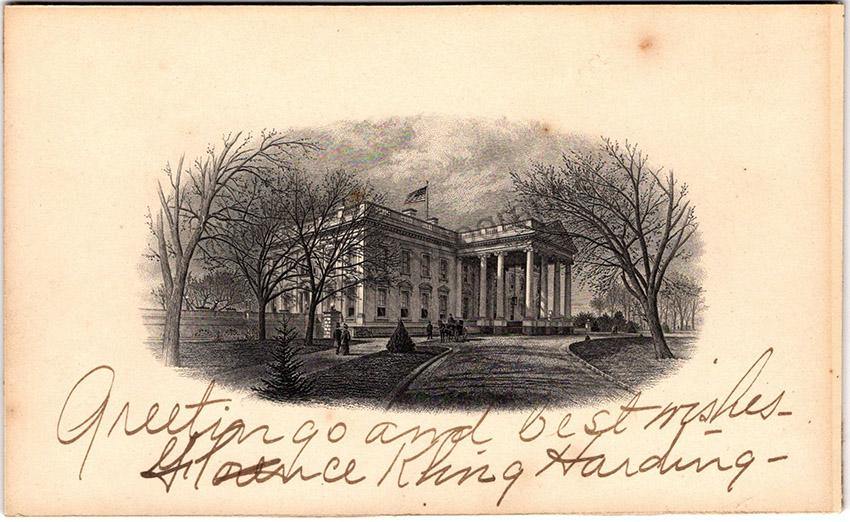 Greetings and best wishes-
Florence Kling Harding-